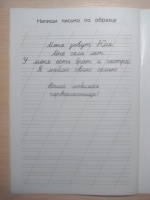 Напиши письмо по образцу
Меня зовут Юля.
Мне семь лет.
У меня есть брат и сестра.
Я люблю свою семью.
Ваша любимая
первоклассница!